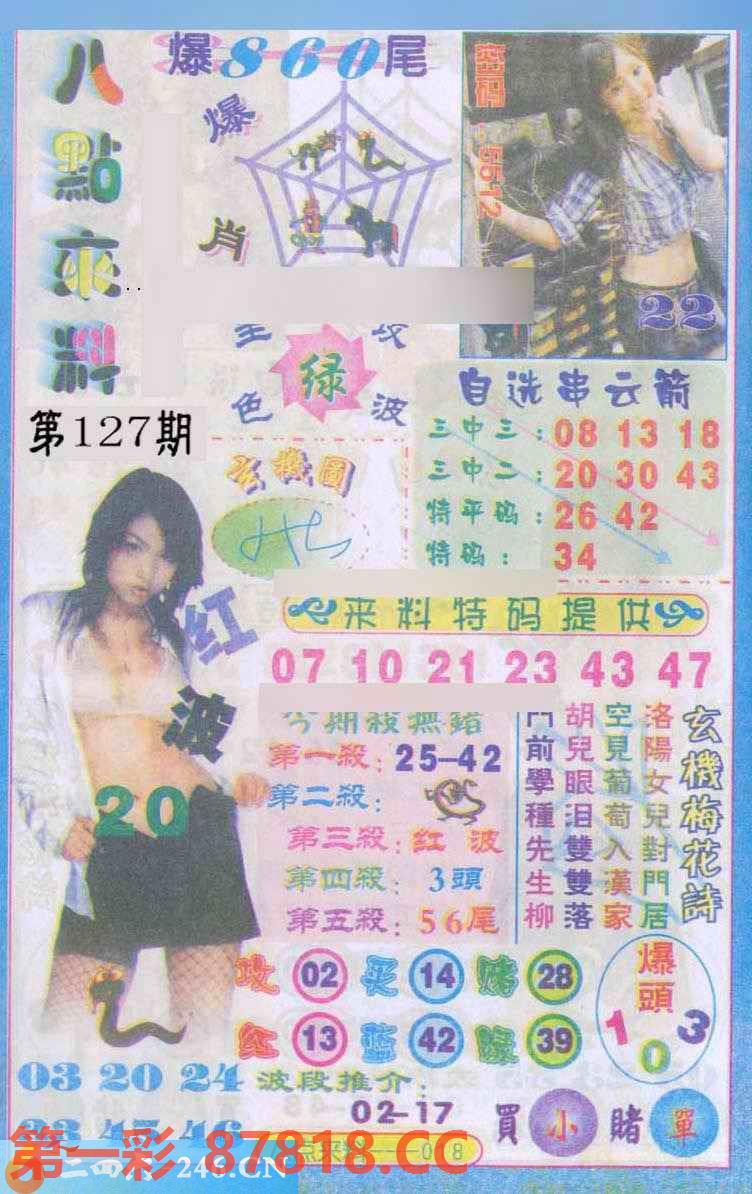 八點來料
爆860尾
爆肖
密码：5512
22
全攻
绿
色波
第127期
自选串云箭
三中三：08 13 18
三中二：20 30 43
特平码：26 42
特码：34
玄機圖
来料特码提供
07 10 21 23 43 47
红波
20
今期殺無錯
第一殺：25-42
第二殺：
第三殺：红波
第四殺：3頭
第五殺：56尾
玄機梅花詩
洛陽女兒對門居
空見葡萄入漢家
胡兒眼泪雙雙落
門前學種先生柳
攻 02 买 14 赌 28
红 13 蓝 42 绿 39
爆頭
1 0 3
03 20 24
波段推介：
02-17
買小賭單
第一彩 87818.CC
246.CN